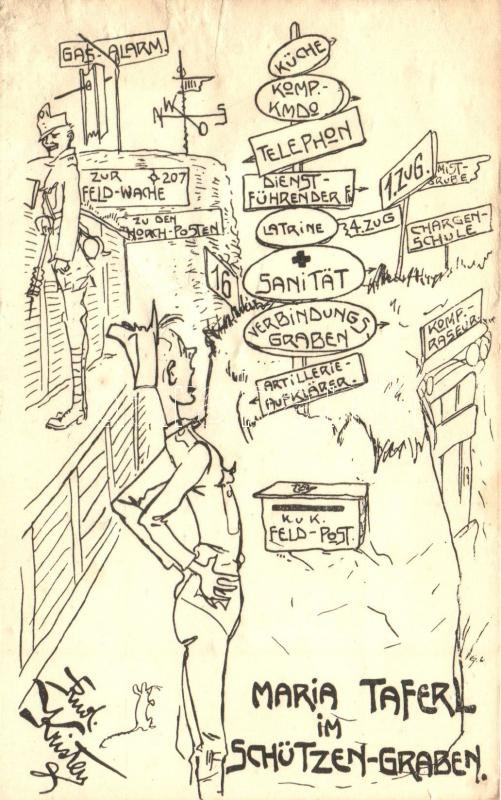 GAS-ALARM.
KÜCHE
KOMP.-
KMDO
TELEPHON
DIENST-
FÜHRENDER
LATRINE
4.ZUG
1.ZUG.
MIST-
GRUBE
CHARGEN-
SCHULE
N W O S
ZUR 207
FELD-WACHE
ZU DEN
HORCH-POSTEN
16
SANITÄT
VERBINDUNGS
GRABEN
KOMP.
RASEUR
ARTILLERIE-
AUFKLÄRER.
K.u.K.
FELD-POST.
MARIA TAFERL
im
SCHÜTZEN-GRABEN.